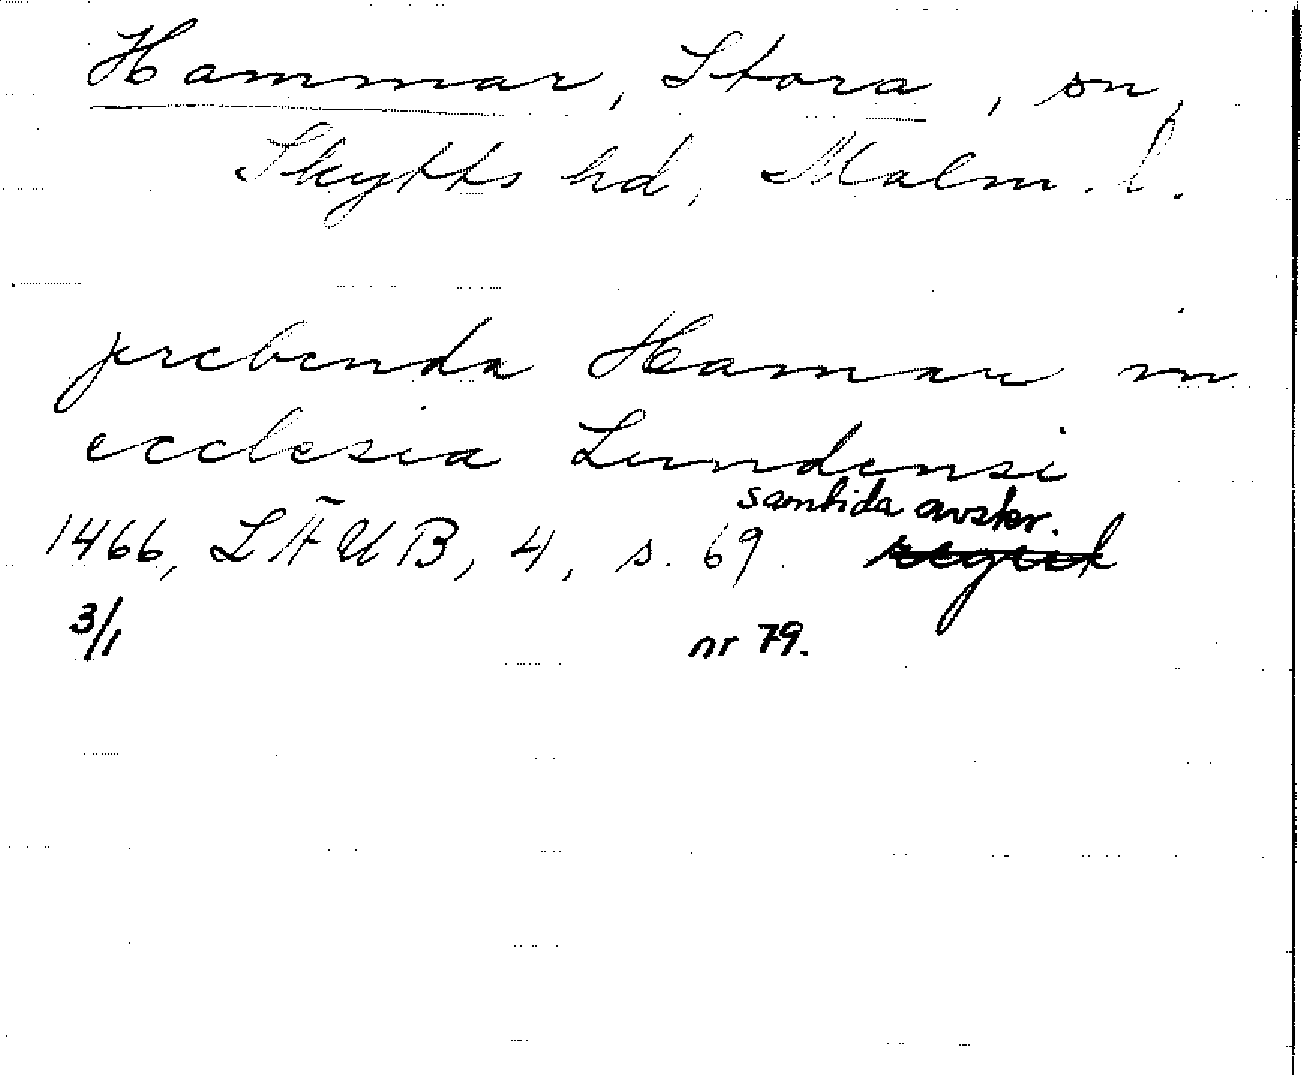 Hammar, Stora, sn,
Skytts hd, Malm. l.
prebenda Hamare in
ecclesia Lundensi
samtida avskr.
1466, LÄUB, 4, s. 69. regist
3/1 nr 79.